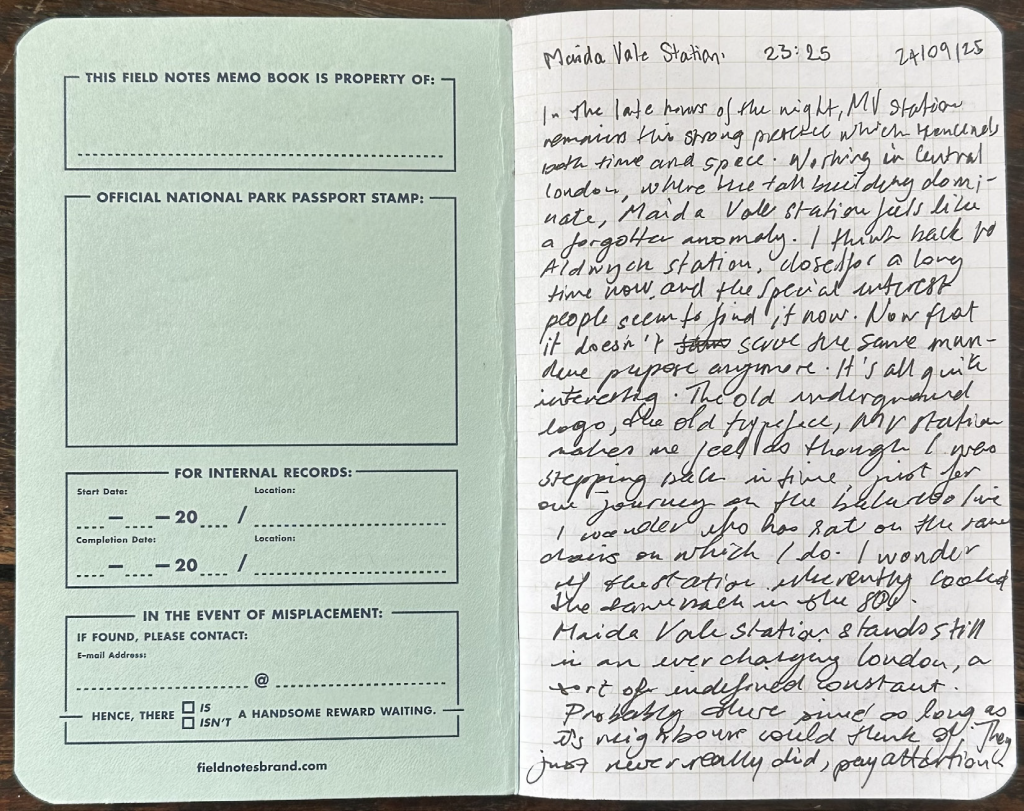 THIS FIELD NOTES MEMO BOOK IS PROPERTY OF:
OFFICIAL NATIONAL PARK PASSPORT STAMP:
FOR INTERNAL RECORDS:
Start Date: Location:
— — 20 /
Completion Date: Location:
— — 20 /
IN THE EVENT OF MISPLACEMENT:
IF FOUND, PLEASE CONTACT:
E-mail Address:
@
HENCE, THERE IS
ISN'T A HANDSOME REWARD WAITING.
fieldnotesbrand.com
Maida Vale Station. 23:25 24/09/25
In the late hours of the night, MV station
remains this strong which
both time and space. Working in Central
London, where the tall building domi-
nate, Maida Vale station feels like
a forgotten anomaly. I think back to
Aldwych station, closed for a long
time now, and the special interest
people seem to find it now. Now that
it doesn't serve the same mun-
dane purpose anymore. It's all quite
interesting. The old underground
logo, the old typeface, MV station
makes me feel as though I was
stepping back in time, just for
one journey on the line
I wonder who has sat on the same
chairs on which I do. I wonder
if the station looked
the same back in the 80s.
Maida Vale station stands still
in an ever changing London, a
sort of undefined constant.
Probably there as long as
it's neighbours could think of. They
just never really did, pay attention